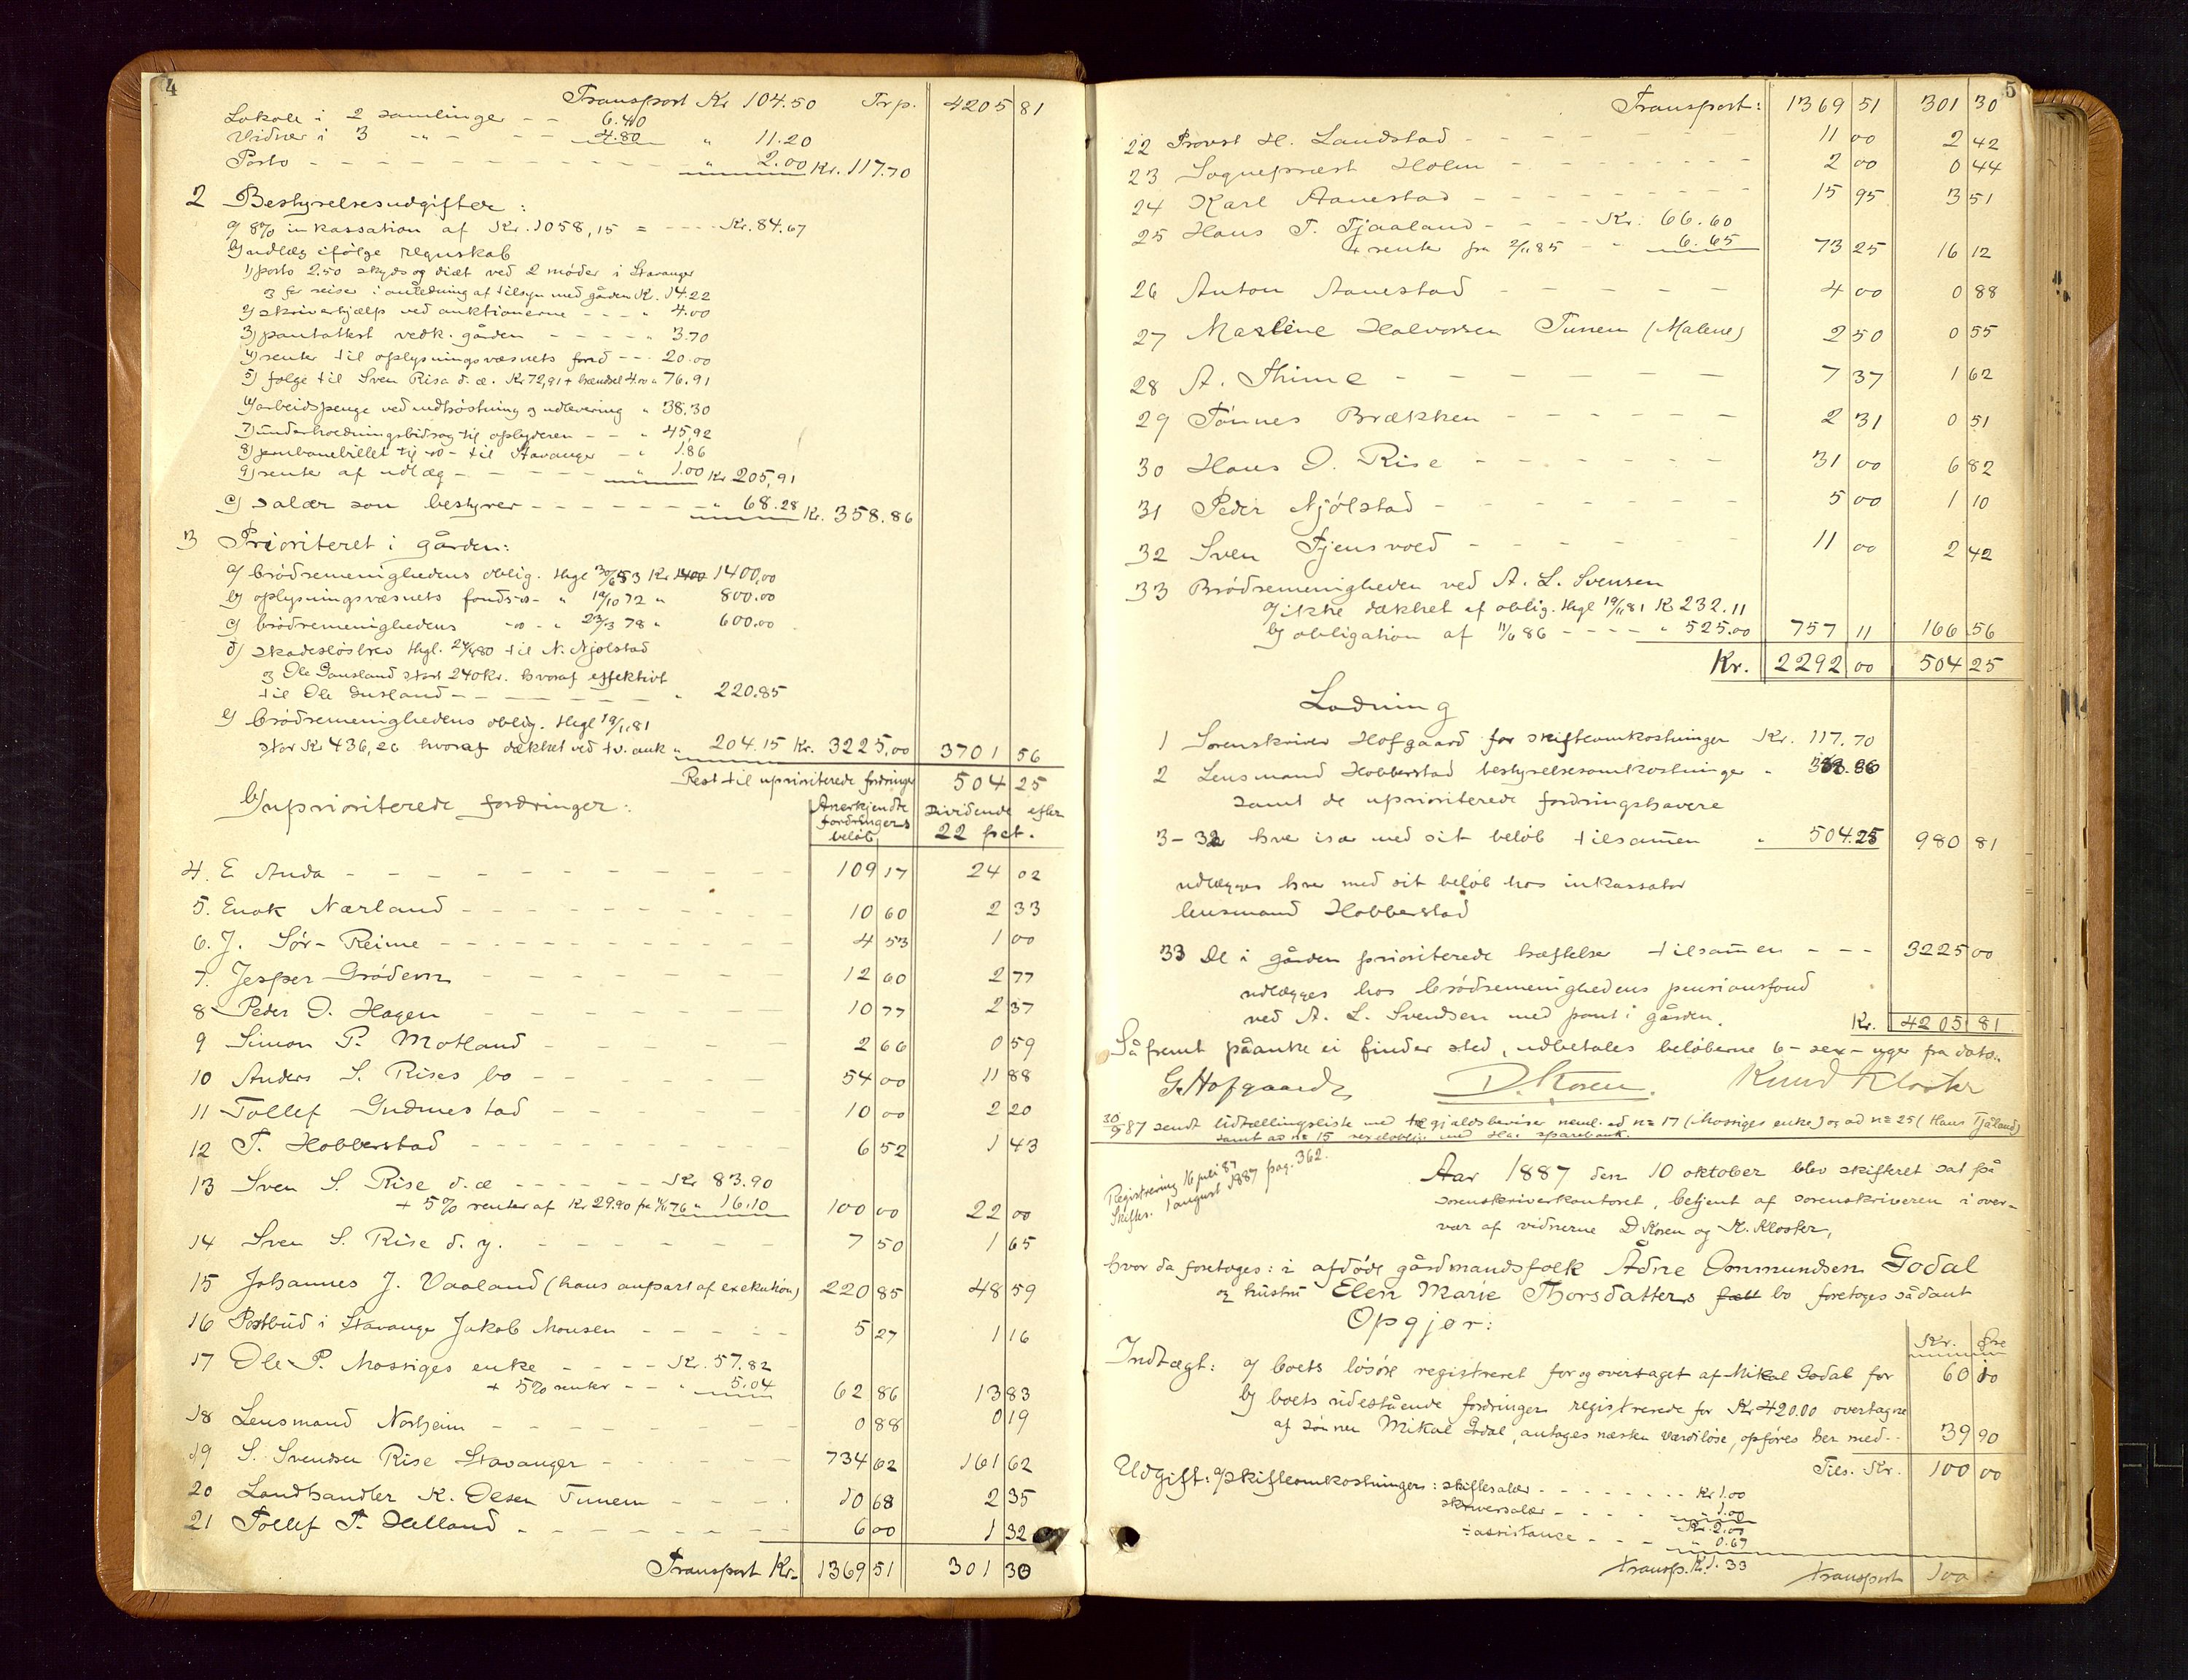 4
Transport Kr 104.50 Trp. 4205 81
Lokale i 2 samlinger - - 6.40
Vidner i 3 " - - - 4.80 " 11.20
Porto - - - - - - - - " 2.00 Kr. 117.70
2 Bestyrelsesudgifter:
a) 8% inkassation af Kr. 1058,15 = - - - - Kr. 84.67
b) udlæg ifølge regnskab
1) porto 2.50 skyds og diæt ved 2 møder i Stavanger
og for reiser i anledning af tilsyn med gården Kr. 14.22
2) skriverhjælp ved auktionerne - - - " 4.00
3) pantattest vedk. gården - - - - " 3.70
4) renter til oplysningsvæsnets fond - - - 20.00
5) følge til Sven Risa d. æ. Kr 72,91 + brændsel 4.00 " 76.91
6) arbeidspenge ved indhøstning og udlevering " 38.30
7) underholdningsbidrag til oplyderen - - " 45,92
8) jernbanebillet til -"- til Stavanger - " 1.86
9) renter af udlæg - - - - - " 1.00 Kr 205,91
c) salær som bestyrer - - - - - - - " 68.28 Kr. 358.86
3 Prioriteret i gården:
a) brødremenighedens oblig. thgl 30/6 53 Kr 1400 1400,00
b) oplysningsvæsnets fonds -"- " 19/10 72 " 800.00
c) brødremenighedens -"- " 23/3 78 " 600.00
d) skadesløsbrev thgl. 24/4 80 til N. Njølstad
og Ole Gausland stort 240 kr. hvoraf effektivt
til Ole Gusland - - - - - - - " 220.85
e) brødremenighedens oblig. thgl 19/11 81
stor Kr 436,26 hvoraf dækket ved tv. auk " 204.15 Kr. 3225,00 3701 56
Rest til uprioriterede fordringer 504 25
b) uprioriterede fordringer:
Anerkjendte fordringers beløb
Dividende efter 22 pct.
4. E Anda - - - - 109 17 24 02
5. Enok Nærland - - - - 10 60 2 33
6. J. Sør-Reime - - - - 4 53 1 00
7. Jesper Grødem - - - - 12 60 2 77
8 Peder O. Hagen - - - - 10 77 2 37
9 Simon P. Motland - - - - 2 66 0 59
10 Anders S. Rises bo - - - - 54 00 11 88
11 Tollef Gudmestad - - - - 10 00 2 20
12 T. Hobberstad - - - - 6 52 1 43
13 Sven S. Rise d. æ - - - - Kr 83.90
+ 5% renter af Kr 29.90 fra 1/1 76 " 16.10 100 00 22 00
14 Sven S. Rise d. y. - - - - 7 50 1 65
15 Johannes J. Vaaland (hans anpart af exekution) 220 85 48 59
16 Postbud i Stavanger Jakob Monsen - - - - 5 27 1 16
17 Ole P. Mossiges enke - - - - Kr. 57.82
+ 5% renter - - " 5.04 62 86 13 83
18 Lensmand Norheim - - - - 0 88 0 19
19 S. Svendsen Rise Stavanger - - - - 734 62 161 62
20 Landhandler K. Olsen Tunem - - - - 10 68 2 35
21 Tollef T. Helland - - - - 6 00 1 32
Transport Kr. 1369 51 301 30
5
Transport: 1369 51 301 30
22 Provst H. Landstad - - - - 11 00 2 42
23 Sogneprest Holm - - - - 2 00 0 44
24 Karl Aanestad - - - - 15 95 3 51
25 Hans T. Tjaaland - - - - Kr. 66.60
+ renter fra 2/11 85 - " 6.65 73 25 16 12
26 Anton Aanestad - - - - 4 00 0 88
27 Marline Halvorsen Tunem (Malene) 2 50 0 55
28 A. Thime - - - - 7 37 1 62
29 Tønnes Brækken - - - - 2 31 0 51
30 Hans O. Rise - - - - 31 00 6 82
31 Peder Njølstad - - - - 5 00 1 10
32 Sven Fjensvoed - - - - 11 00 2 42
33 Brødremenigheden ved A. L. Svensen
a) ikke dækket af oblig. thgl 19/11 81 Kr 232.11
b) obligation af 11/6 86 - - - - " 525.00 757 11 166 56
Kr. 2292 00 504 25
Lodning
1 Sorenskriver Hofgaard for skifteomkostninger Kr. 117.70
2 Lensmand Hobberstad bestyrelsesomkostninger " 358.86
samt de uprioriterede fordringshavere
3-32 hver især med sit beløb tilsam̄en " 504.25 980 81
udlægges hver med sit beløb hos inkassator
lensmand Hobberstad
33 De i gården prioriterede hæftelser tilsam̄en - - - 3225 00
udlægges hos brødremenighedens pensionsfond
ved A. L. Svendsen med pant i gården.
Kr. 4205 81
Såfremt påanke ei finder sted, udbetales beløberne 6-sex-uger fra dato.
G. Hofgaard D. Koren. Knud Kloster
30/9 87 sendt Udtællingsliste med tilgjældsbeviser neml. ad no 17 (Mossiges enke) og ad no 25 (Hans Tjåland)
samt ad no 15 med Hås sparebank.
Registrering 16 juli 87
Skiftes. 1 august 1887 pag. 362.
Aar 1887 den 10 oktober blev skifteret sat på
sorenskriverkontoret, betjent af sorenskriveren i over-
vær af vidnerne D Koren og K. Kloster,
hvor da foretoges: i afdøde gårdmandsfolk Ådne Ommundsen Godal
og hustru Elen Marie Thorsdatters fæll bo foretoges sådant
Opgjør:
Kr. Øre
Indtægt: a) boets løsøre registreret for og overtaget af Mikal Godal for 60 10
b) boets udestående fordringer registrerede for Kr 420.00 overtagne
af sønnen Mikal Godal, antages næsten værdiløse, opføres her med - - 39 90
Tils. Kr. 100 00
Udgift: a) skifteomkostninger: skiftesalær - - - - - Kr 1.00
skriversalær - - - - " 1.00
Kr. 2.00
÷ assistance - - - " 0.67
transp. Kr. 1.33 transport 100 :